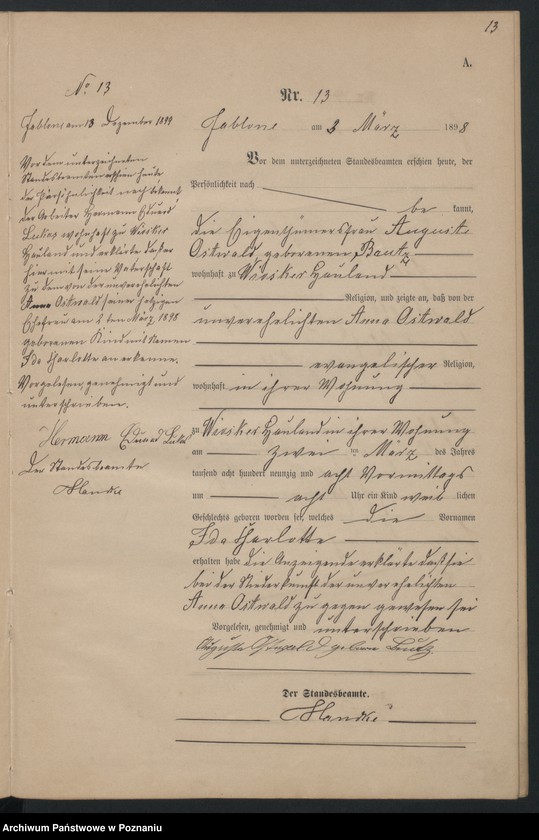 13
A.
Nr. 13
Jablone am 2 März 1898
Vor dem unterzeichneten Standesbeamten erschien heute, der
Persönlichkeit nach
be kannt,
die Eigenthümersfrau Auguste
Ostwald geborenen Bautz
wohnhaft zu Wiosker Hauland
Religion, und zeigte an, daß von der
unverehelichten Anna Ostwald
evangelischer Religion,
wohnhaft in ihrer Wohnung
zu Wiosker Hauland in ihrer Wohnung
am zwei ten März des Jahres
tausend acht hundert neunzig und acht Vormittags
um acht Uhr ein Kind weib lichen
Geschlechts geboren worden sei, welches die Vornamen
Ida Charlotte
erhalten habe die Anzeigende erklärte daß sie
bei der Niederkunft der unverehelichten
Anna Ostwald zu gegen gewesen sei
Vorgelesen, genehmigt und unterschrieben
Auguste Ostwald geborne
Der Standesbeamte.
No 13
Jablone am 13 Dezember 1899
Vor dem unterzeichneten
Standesbeamten erschien heute
der Persönlichkeit nach bekannt
der Arbeiter Hermann Eduard
Lukas wohnhaft zu Wiosker
Hauland und erklärte daß er
hiermit seine Vaterschaft
zu dem von der unverehelichten
Anna Ostwald seiner jetzigen
Ehefrau am 2 ten März 1898
geborenen Kind mit Namen
Ida Charlotte anerkenne.
Vorgelesen, genehmigt und
unterschrieben.
Hermann Eduard
Der Standesbeamte
Archiwum Państwowe w Poznaniu